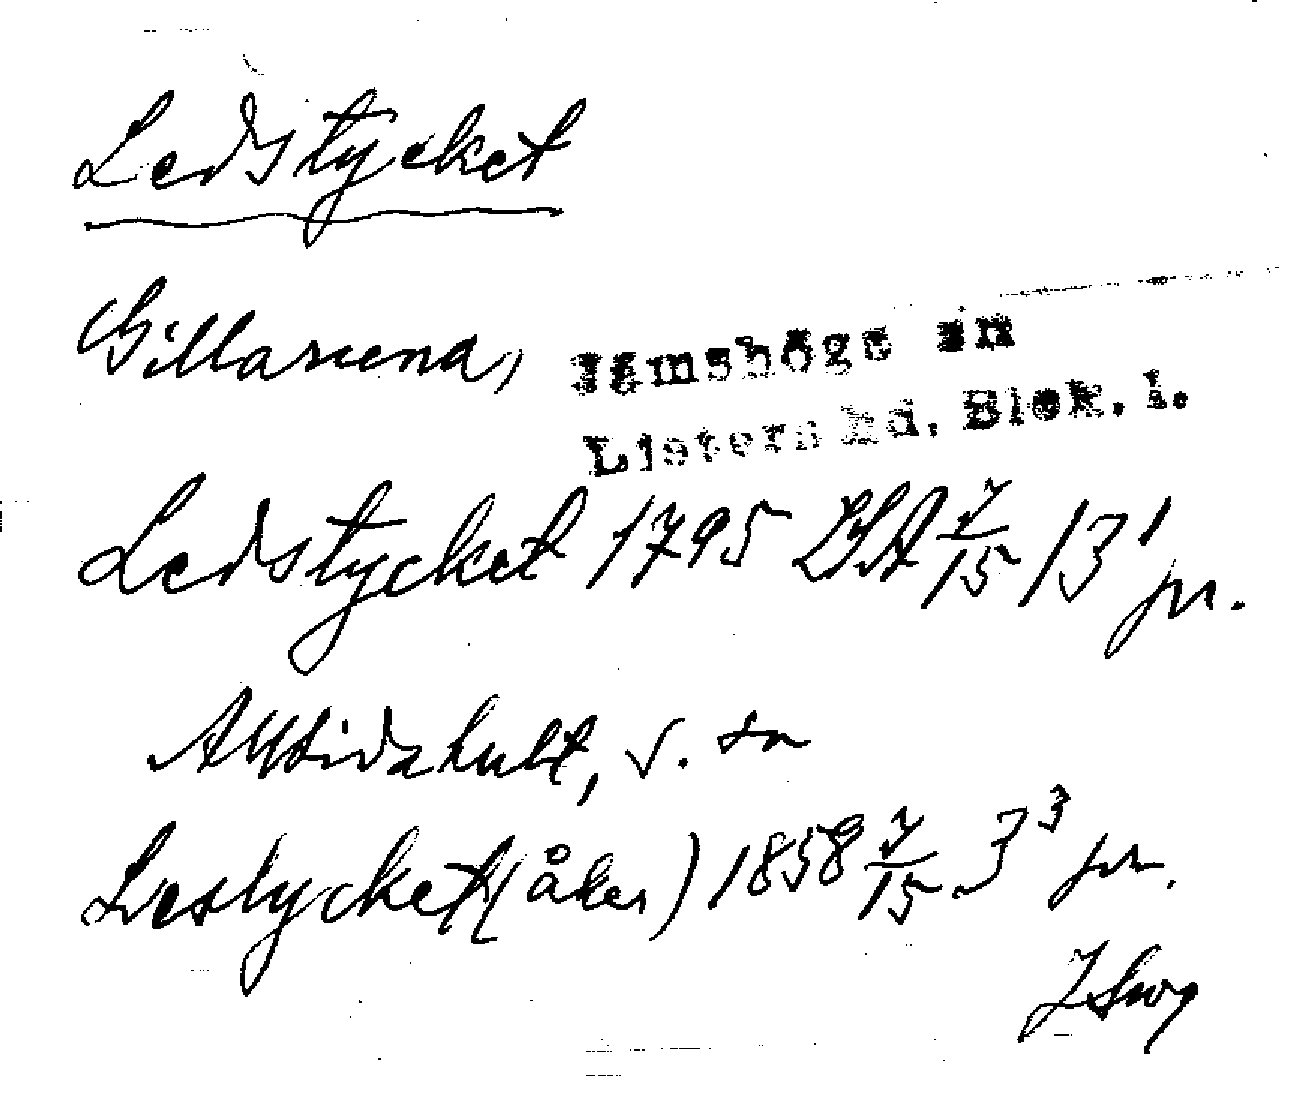 Ledstycket
Gillaruena,
Jämshögs sn
Listers hd. Blek. l.
Ledstycket 1795 LSA 7/15 13¹ pr.
Alltidahult, s. sn
Lestycket (åker) 1858 7/15 3³ pr.